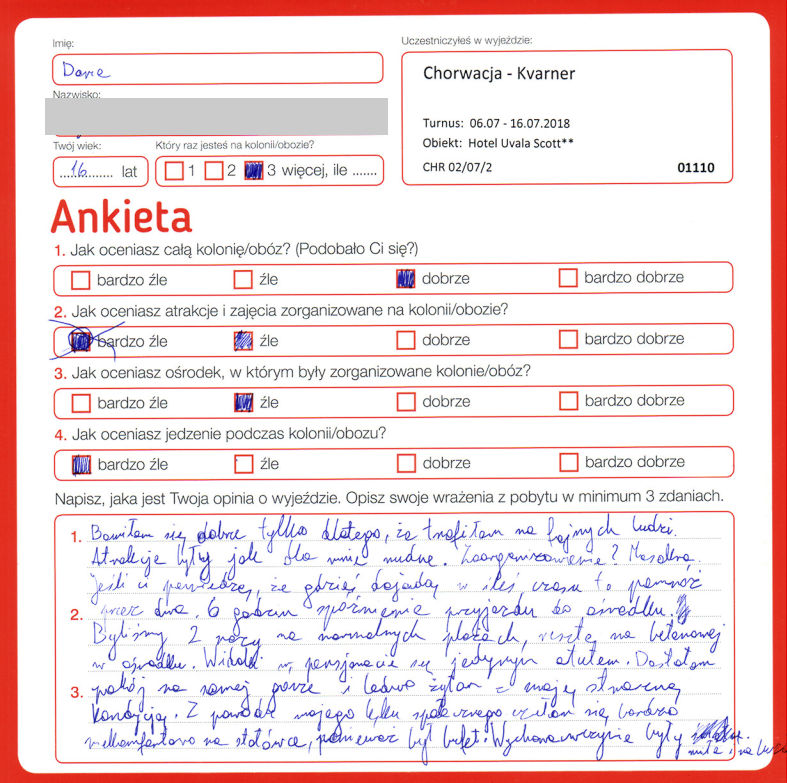 Imię:
Uczestniczyłeś w wyjeździe:
Daria
Chorwacja - Kvarner
Nazwisko:
Turnus: 06.07 - 16.07.2018
Obiekt: Hotel Uvala Scott**
CHR 02/07/2 01110
Twój wiek: Który raz jesteś na kolonii/obozie?
....16....... lat 1 2 3 więcej, ile .......
Ankieta
1. Jak oceniasz całą kolonię/obóz? (Podobało Ci się?)
bardzo źle źle dobrze bardzo dobrze
2. Jak oceniasz atrakcje i zajęcia zorganizowane na kolonii/obozie?
bardzo źle źle dobrze bardzo dobrze
3. Jak oceniasz ośrodek, w którym były zorganizowane kolonie/obóz?
bardzo źle źle dobrze bardzo dobrze
4. Jak oceniasz jedzenie podczas kolonii/obozu?
bardzo źle źle dobrze bardzo dobrze
Napisz, jaka jest Twoja opinia o wyjeździe. Opisz swoje wrażenia z pobytu w minimum 3 zdaniach.
1. Bawiłam się dobrze tylko dlatego, że trafiłam na fajnych ludzi.
Atrakcje były jak dla mnie nudne. Zoorganizowanie? Masakra.
Jeśli ci powiedzą, że gdzieś dojadą w ileś czasu to pomnóż
2. przez dwa. 6 godzin spóźnienie przyjazdu do ośrodku.
Byliśmy 2 razy na normalnych plażach, resztę na betonowej
w ośrodku. Widoki w pensjonacie są jedynym atutem. Dostałam
3. pokój na samej górze i ledwo żyłam z moją straszną
kondycją. Z powodu mojego lęku społecznego czułam się bardzo
niekomfortowo na stołówce, ponieważ był bufet. Wychowawczynie były
miłe i na luzie